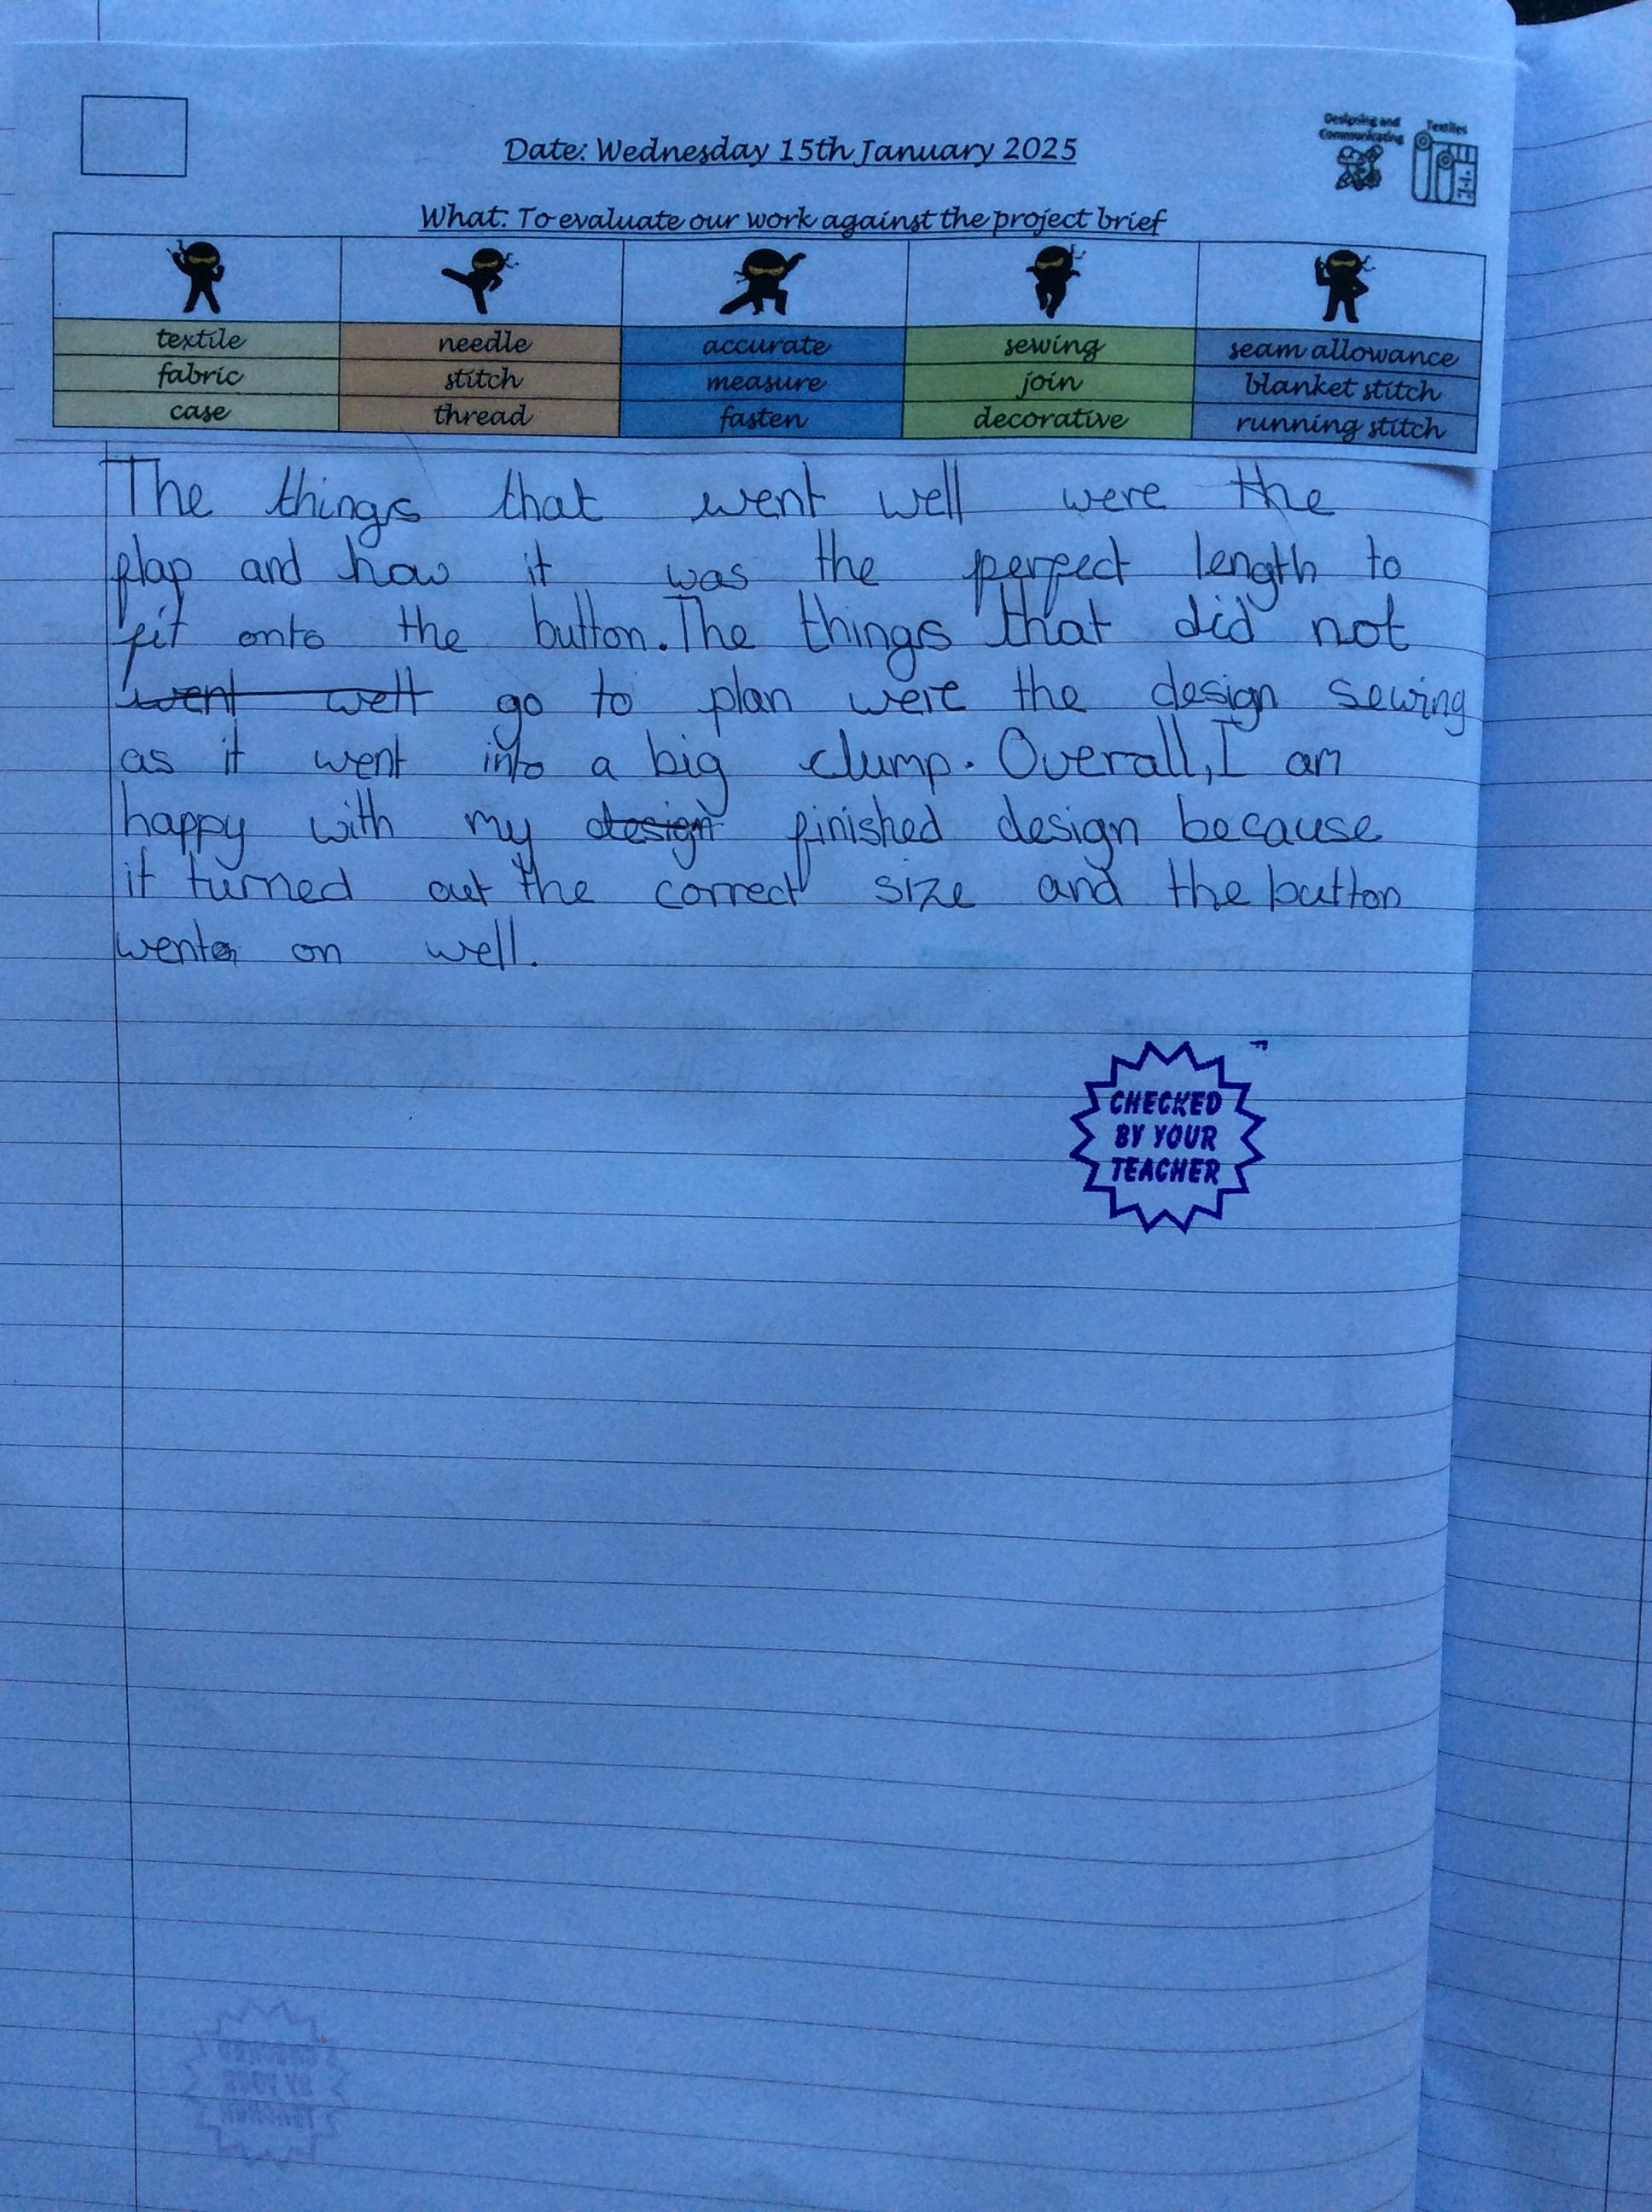 Designing and Textiles
Communicating
Date: Wednesday 15th January 2025
What: To evaluate our work against the project brief
textile needle accurate sewing seam allowance
fabric stitch measure join blanket stitch
case thread fasten decorative running stitch
The things that went well were the
flap and how it was the perfect length to
fit onto the button. The things that did not
went well go to plan were the design sewing
as it went into a big clump. Overall, I am
happy with my design finished design because
it turned out the correct size and the button
went on well.
CHECKED
BY YOUR
TEACHER
CHECKED
BY YOUR
TEACHER